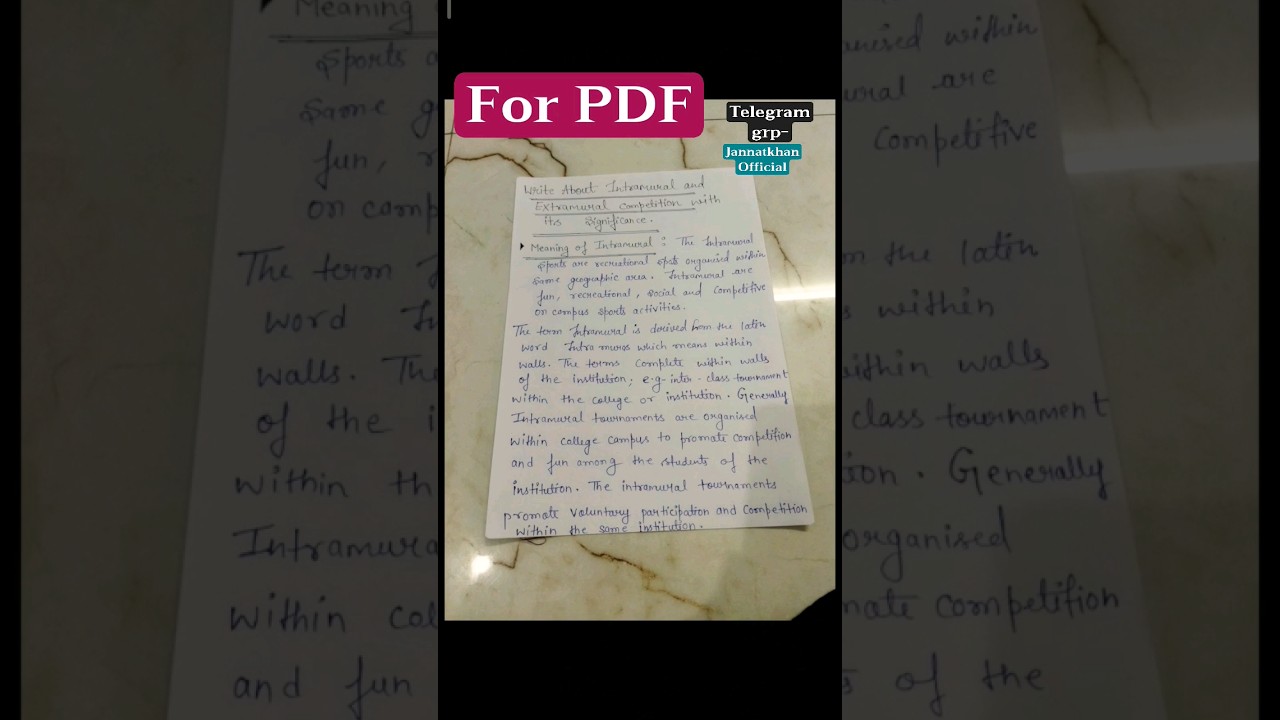 For PDF
Telegram
grp-
Jannatkhan
Official
Write About Intramural and
Extramural Competition with
its Significance.
Meaning of Intramural : The Intramural
Sports are recreational spots organised within
same geographic area. Intramural are
fun, recreational, social and competitive
on campus sports activities.
The term Intramural is derived from the latin
word Intra muros which means within
walls. The terms complete within walls
of the institution; e.g- inter-class tournament
within the college or institution. Generally
Intramural tournaments are organised
within college campus to promate competition
and fun among the students of the
institution. The intramural tournaments
promate voluntary participation and Competition
within the same institution.